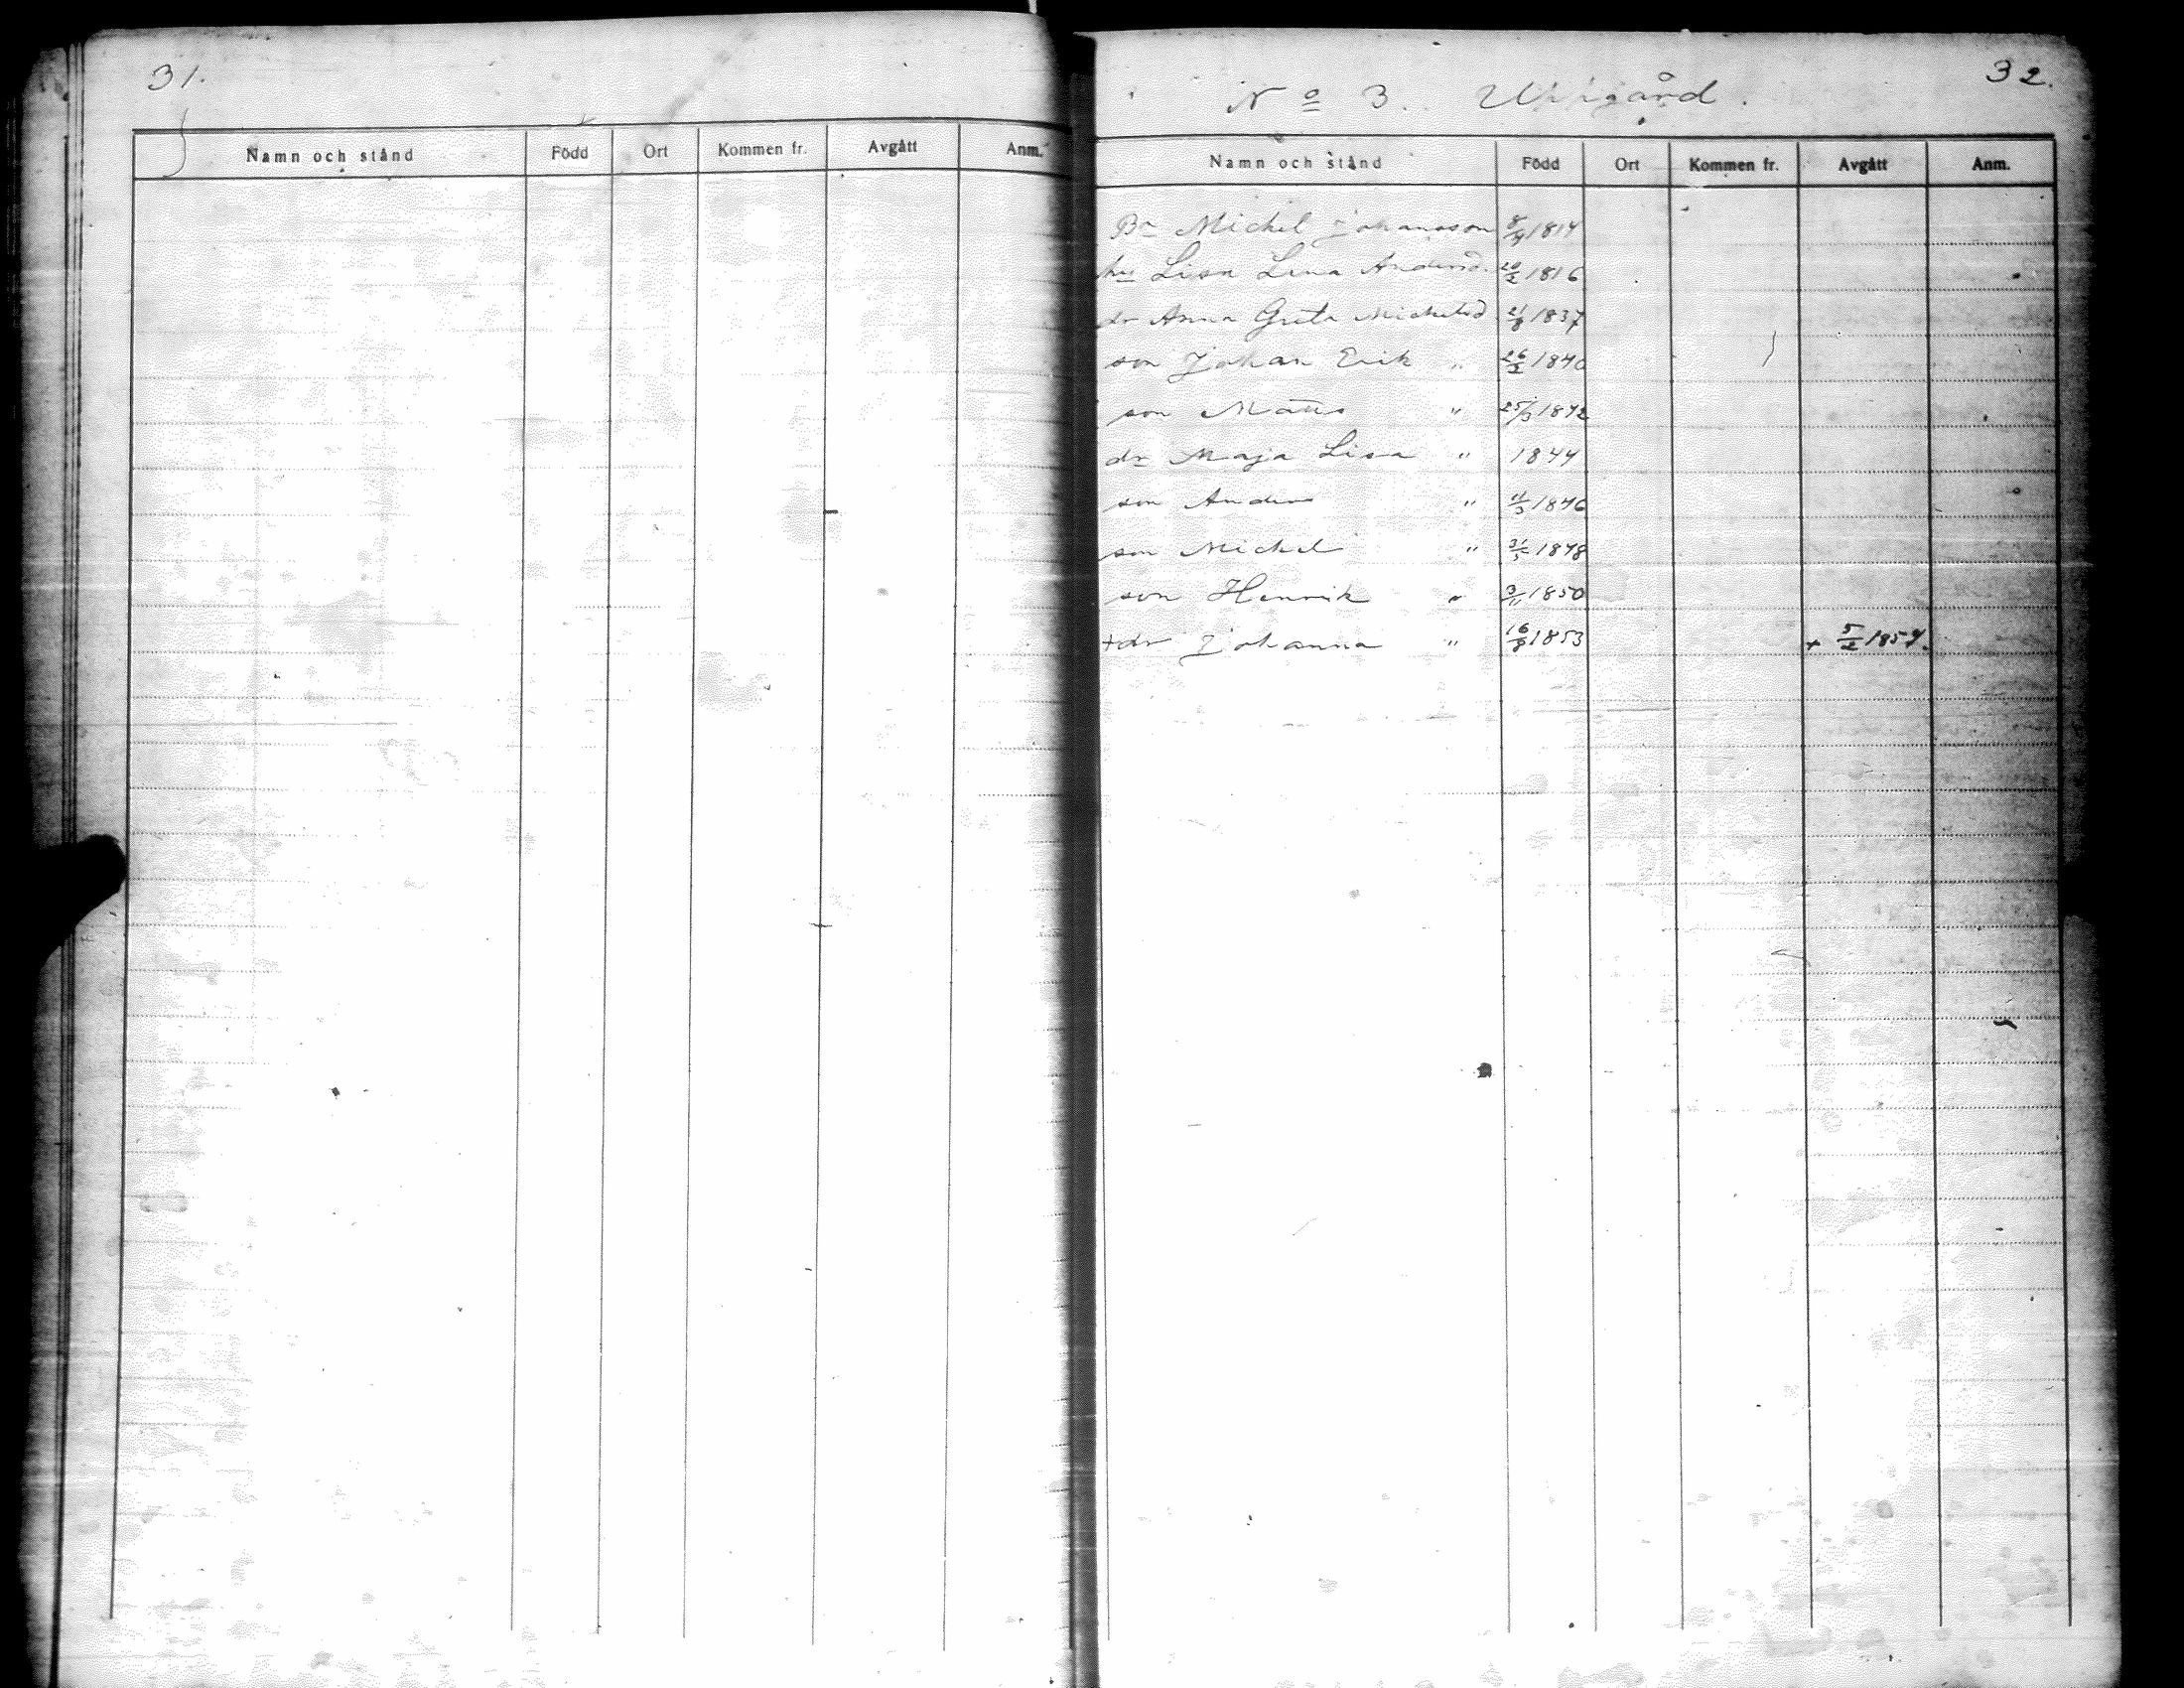 31.
Namn och stånd Född Ort Kommen fr. Avgått Anm.
32.
No 3. gård.
Namn och stånd Född Ort Kommen fr. Avgått Anm.
Bn Michel Johansson 8/9 1814
hu Lisa Lena Andersd. 20/2 1816
dr Anna Greta Michelsd 21/8 1837
son Johan Erik " 26/2 1840
son Matts " 25/3 1842
dr Maja Lisa " 1844
son Anders " 11/3 1846
son Michel " 31/5 1848
son Henrik " 3/11 1850
+ dr Johanna " 16/8 1853 + 5/2 1857.